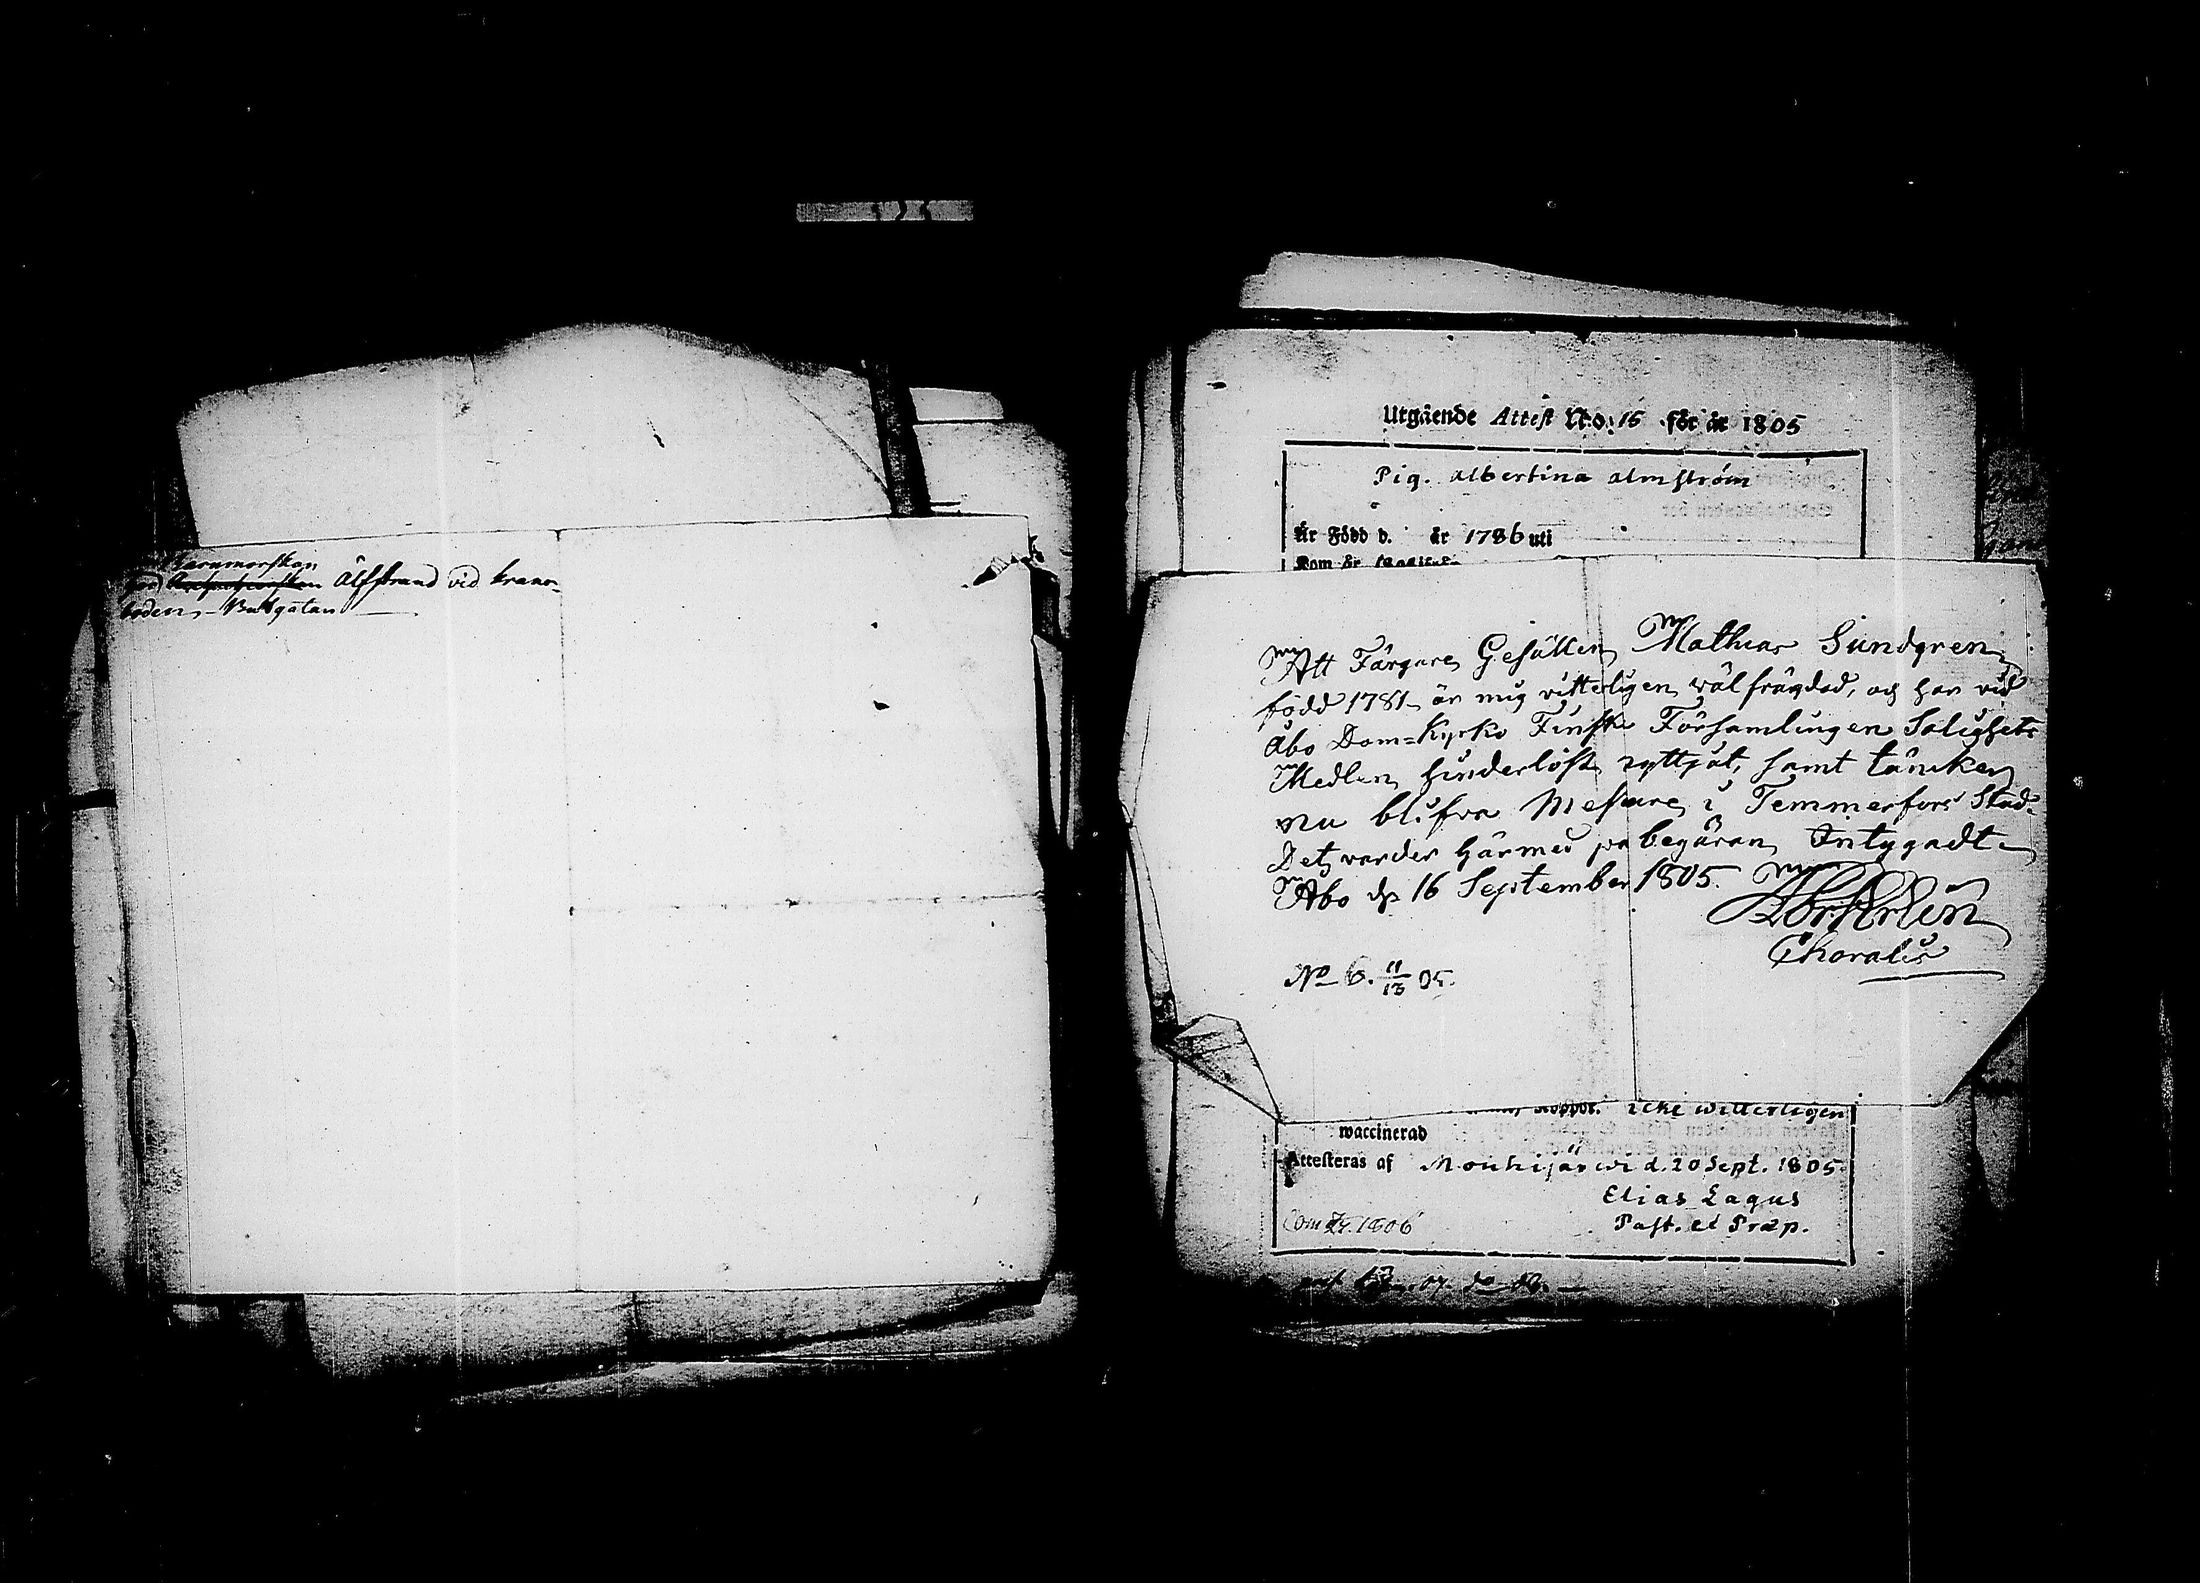 Barnmorskan
Älfstrand vid krano-
boden,
Utgående Attest N:o. 15 för år 1805
Pig. Albertina Almström
Är Född d. år 1786 uti
Kom år
Att Färgare Gesällen Mathias Sundgren
född 1781 är mig vitterligen wäl frägdad, och har vid
Åbo Dom=Kyrko Finska Församlingen Salighets
Medlen hinderlöst nyttjat, samt täncker
nu blifva Mestare i Temmerfors Stad.
Det varder härmed på begäran Intygadt
Åbo d. 16 September 1805.
Choralis
No 6. 11/13 05.
Koppor. icke witterligen
waccinerad
Attesteras af Mouhijärwi d. 20 Sept. 1805.
Elias Lagus
Past. et Præp.
1806